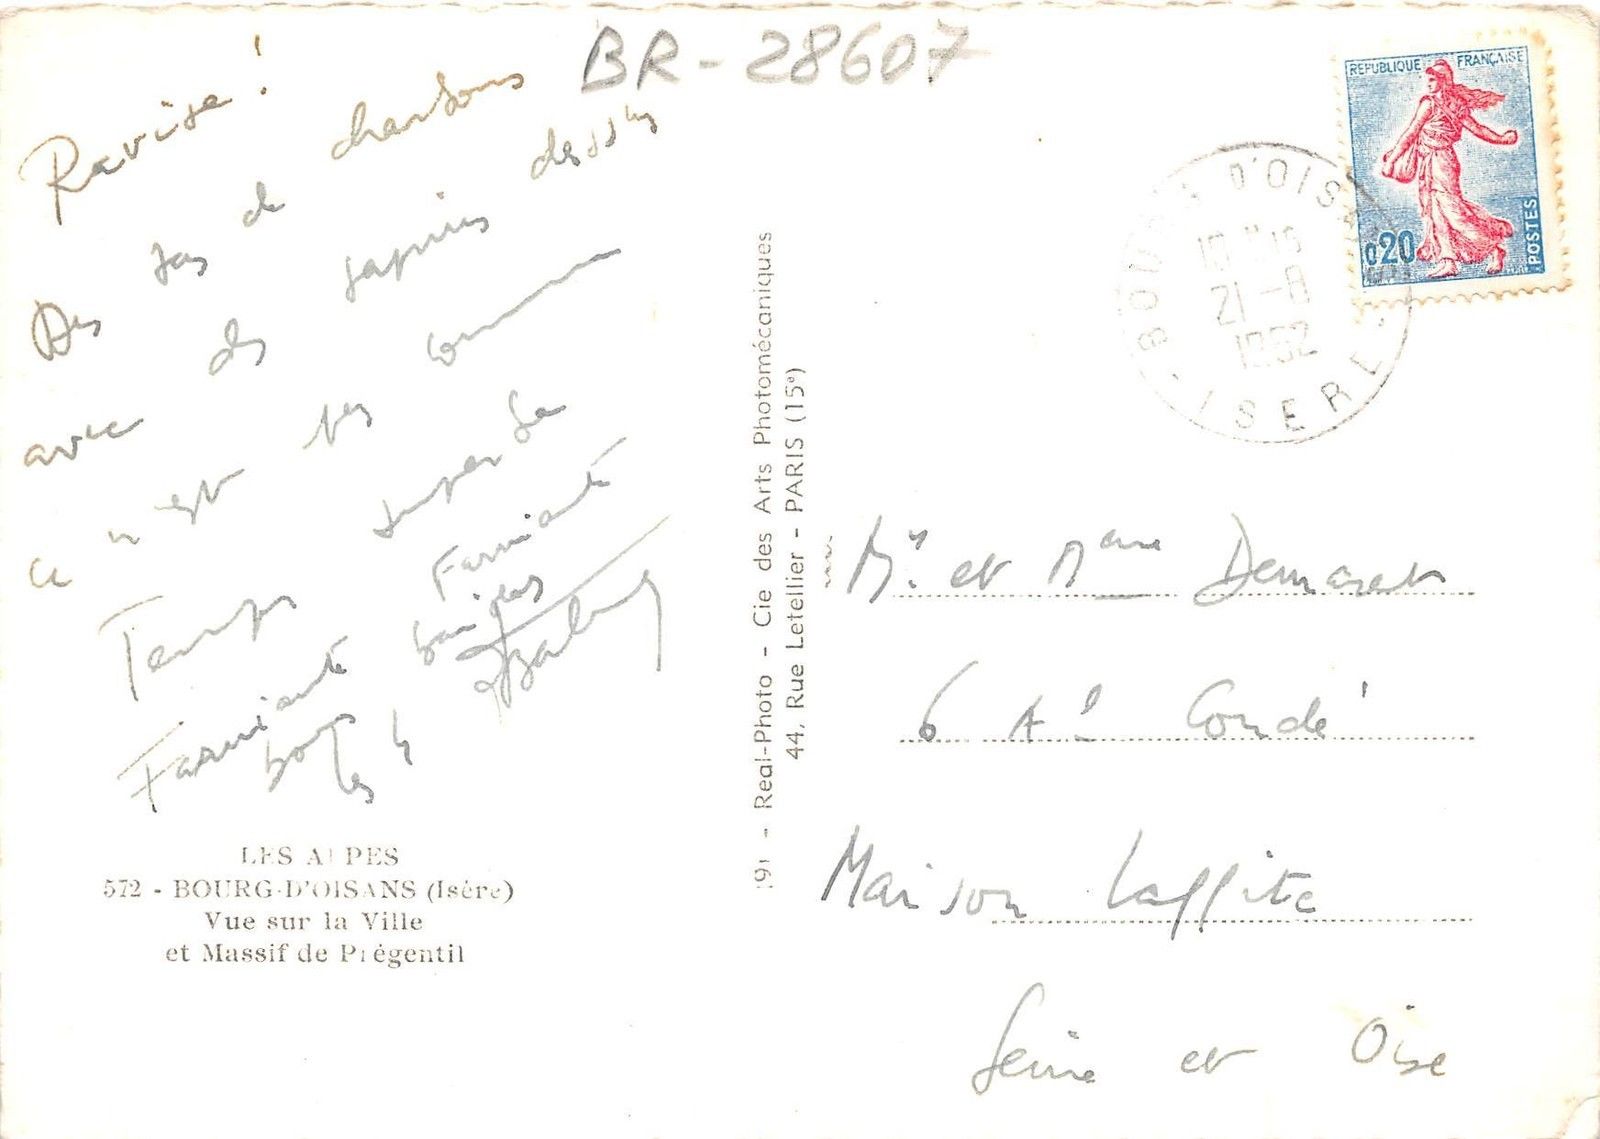 BR-28607
Ravise !
Des tas de chardons
avec des sapins dessus
ce n'est pas commun
Temps superbe
Farniente Farniente
bougies
LES ALPES
572 - BOURG-D'OISANS (Isère)
Vue sur la Ville
et Massif de Prégentil
Real-Photo - Cie des Arts Photomécaniques
44, Rue Letellier - PARIS (15e)
REPUBLIQUE FRANÇAISE
0,20
POSTES
BOURG D'OISANS
21 -8
1962
ISERE
Mr. et Mme Demarets
6 Al Condé
Maison Laffite
Seine et Oise